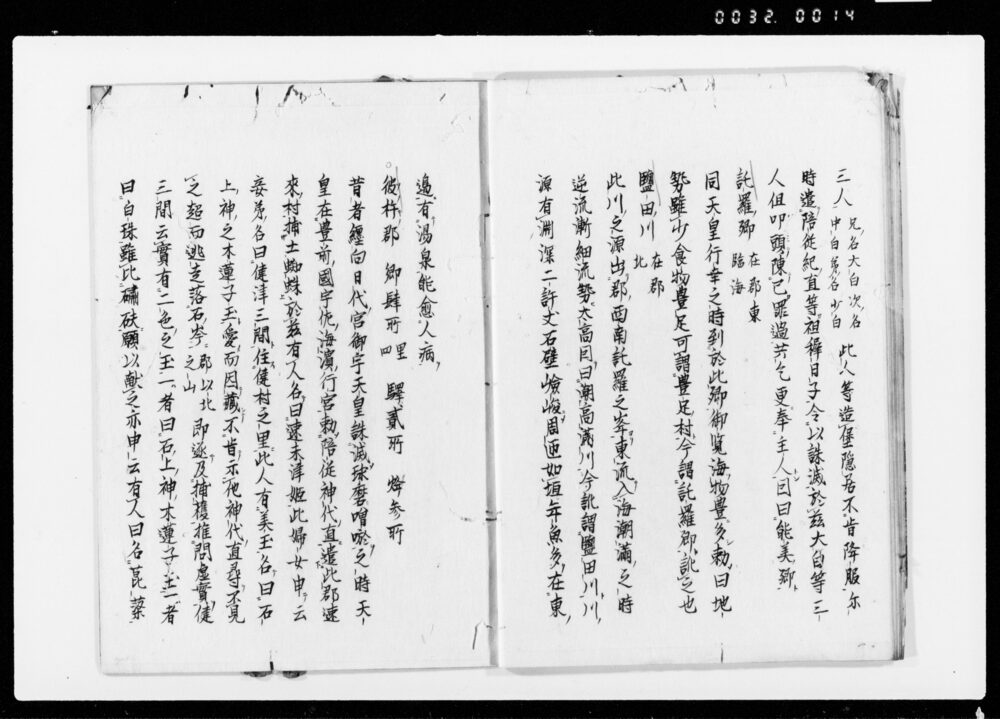 0032.0014
三人 兄名大白次名中白弟名少白 此人等造堡隠居不肯降服尓
時遣陪従紀直等祖穉日子令以誅滅於玆大白等三
人但叩頭陳己罪過共乞更奉主人因曰能美郷
託羅郷 在郡東臨海
同天皇行幸之時到於此郷御覧海物豊多勅曰地
勢雖少食物豊足可謂豊足村今謂託羅郷訛之也
塩田川 在郡北
此川之源出郡西南託羅之峯東流入海潮満之時
逆流泝細流勢太高因曰潮高満川今訛謂塩田川川
源有渕深二許丈石壁嶮峻周匝如垣年魚多在東
邊有湯泉能愈人病
彼杵郡 郷肆所 里四 驛貳所 烽参所
昔者纏向日代宮御宇天皇誅滅球磨噌唹之時天
皇在豊前國宇佐海濱行宮勅陪従神代直遣此郡速
来村捕土蜘蛛於玆有人名曰速来津姫此婦女申云
妾弟名曰健津三間住健村之里此人有美玉名曰石
上神之木蓮子玉愛而固藏不肯示他神代直尋不見
之超而逃走落石岑 郡以北之山 即逐及捕獲推問虚實健
三間云實有二色之玉一者曰石上神木蓮子玉一者
曰白珠雖比礵砆願以献之亦申云有人曰名箟簗